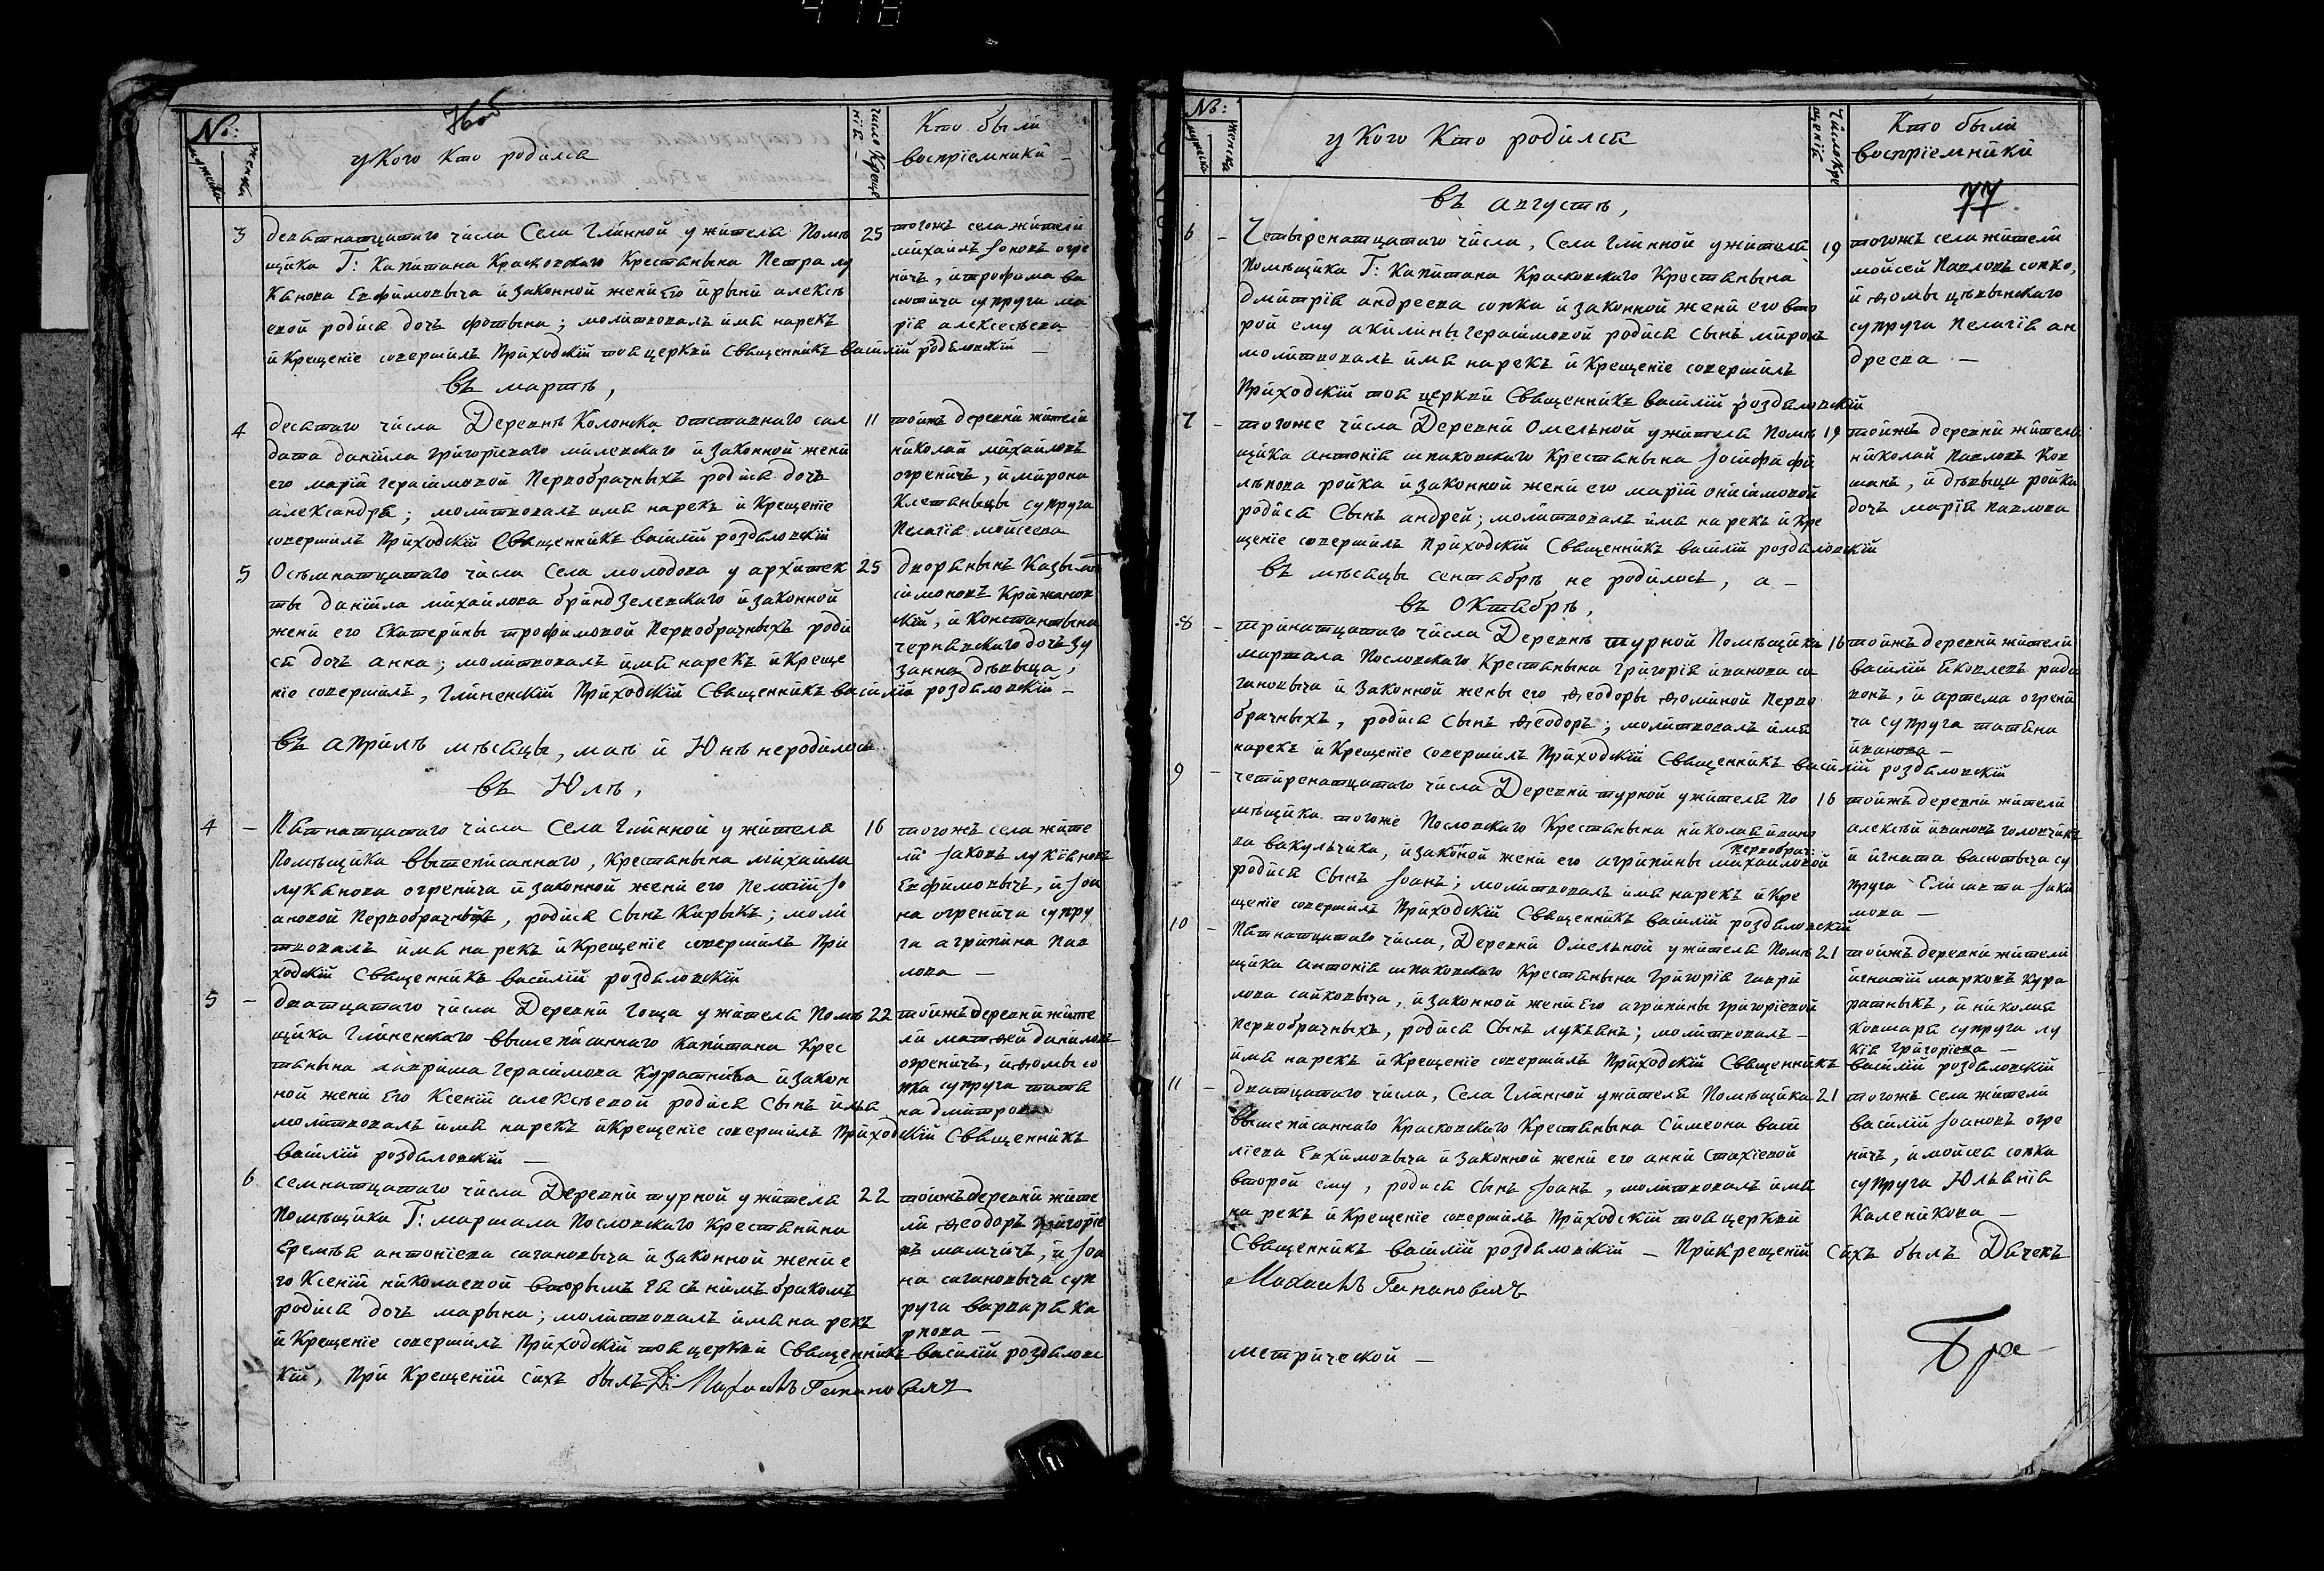 418
76об
№:
мужеска
женска
у Кого Кто родился
число Креще
нїя
Кто были
воспрїемники
3
девятнатцатаго числа Села Глинной у жителя Помѣ
щика Г: Капитана Красковскаго Крестьянына Петра лу
Канова Евфимовыча и законной жени Его Ирыни алексѣ
евой родися дочь фотына; молитвовалъ имя нарекъ
и Крещенїе совершилъ Приходскїй тоя церкви Священникъ василїй роздяловскїй
25
тогожъ села жители
михаилъ Iоновъ огре
ничъ, и трофима ва
супруга ма
рїя алексеевна
въ мартѣ,
4
десятаго числа Деревнѣ Колонска отставнаго сал
дата данїила григорїевого милевского и законной жени
его марїи герасимовой Первобрачныхъ родися дочь
александра; молитвовалъ имя нарекъ и Крещенїе
совершилъ Приходскїй Священникъ василїй роздяловскїй
11
тоижъ деревни жители
николай михайловъ
огреничъ, и мирона
супруга
Пелагїя мойсеева
5
Осѣмнатцатаго числа Села молодова у архитек
ты данїила михайлова бриндзелевскаго и законной
жени его Екатерины трофимовой Первобрачныхъ роди
ся дочь анна; молитвовалъ имя нарекъ и Креще
нїе совершилъ, глиненскїй Приходскїй Священникъ василїй роздяловскїй
25
дворянынъ
симоновъ Крижанов
скїй, и Константына
чернявскаго дочь зу
занна дѣвыца,
въ априлѣ мѣсяцы, маѣ и Юнѣ неродилось
въ Юлѣ,
4 -
Пятнатцатаго числа Села Глинной у жителя
Помѣщика вышеписаннаго, Крестьянына михаила
луканова огренича и законной жени его Пелагїи Iо
ановой Первобрачныхъ, родися сынъ Кирыкъ; моли
твовалъ имя нарекъ и Крещенїе совершилъ При
ходскїй Священникъ василїй роздяловскїй
16
тогожъ села жите
ли Iаковъ лукїяновъ
Евфимовычъ, и Iоа
на огренича супру
га агрипина пав
лова -
5 -
дватцатаго числа Деревни Гоща у жителя Помѣ
щика Глиненскаго вышеписаннаго Капитана Крес
тьянына герасимова Куратника и закон
ной жени Его Ксенїи алексѣевой родися сынъ илья
молитвовалъ имя нарекъ и Крещенїе совершилъ Приходскїй Священникъ
василїй роздяловскїй -
22
тоижъ деревни жите
ли матѳей даниловъ
огреничъ, и ѳомы со
пка супруга татїя
на дмитрова
6
семнатцатаго числа Деревни турной у жителя
Помѣщика Г: маршала Пословскаго Крестьянина
Еремѣя антонїева сагановыча и законной жени е
го Ксенїи николаевой вторымъ ея съ нимъ бракомъ
родися дочь марына; молитвовалъ имя на рекъ
и Крещенїе совершилъ Приходскїй тоя церкви Священникъ василїй роздяловс
кїй, При Крещенїи сихъ былъ Д:
22
тоижъ деревни жите
ли ѳеодоръ григорїе
въ мамчичъ, и Iоа
на сагановыча суп
руга варвара Ка
рпова -
№:
мужеска
женска
у Кого Кто родился
Число Кре
щенїя
Кто были
воспрїемники
77
въ августѣ,
6 -
Четыренатцатаго числа, Села Глинной у жителя
Помѣщика Г: Капитана Красковскаго Крестьянына
дмитрїя андреева сопка и законной жени его вто
рой ему акилины герасимовой родися сынъ миронъ
молитвовалъ имя нарекъ и Крещенїе совершилъ
Приходскїй тоя церкви Священникъ василїй роздяловскїй
19
тогожъ села жители
мойсей Павловъ сопко,
и ѳомы
супруга Пелагїя ан
дреева -
7 -
тогоже числа Деревни Омельной у жителя Помѣ
щика антонїя шпаковскаго Крестьянына Iосифа фи
липова ройка и законной жени его марїи онисимовой
родися Сынъ андрей; молитвовалъ имя нарекъ и Кре
щенїе совершилъ Приходскїй Священникъ василїй роздяловскїй
19
тоижъ деревни жители
николай Павловъ Ков
шаръ, и дѣвыца ройка
дочь марїя павлова
въ мѣсяцы сентябрѣ не родилось, а -
въ октябрѣ,
8 -
тринатцатаго числа Деревнѣ турной Помѣщика
маршала Пословскаго Крестьянына григорїя иванова са
гановыча и законной жены его ѳеодоры ѳоминой Перво
брачныхъ, родися сынъ ѳеодоръ; молитвовалъ имя
нарекъ и Крещенїе совершилъ Приходскїй Священникъ василїй роздяловскїй
16
тоижъ деревни жители
василїй Яковлевъ
и артема огрени
ча супруга татїяна
иванова -
9 -
четиренатцатаго числа Деревни турной у жителя По
мѣщика тогоже Пословскаго Крестьянына николая ивано
ва вакульчика, и законной жени его агрипины михайловой первобрач:
родися сынъ Iоанъ; молитвовалъ имя нарекъ и Кре
щенїе совершилъ Приходскїй Священникъ василїй роздяловскїй
16
тоижъ деревни жители
алексѣй ивановъ головчикъ
и игната су
пруга Елисавета Iаки
мова -
10 -
Пятнатцатаго числа, Деревни Омельной у жителя Помѣ
щика антонїя шпаковскаго Крестьянына григорїя гаври
лова сайковыча, и законной жени Его агрипины григорїевой
Первобрачныхъ, родися Сынъ лукьянъ; молитвовалъ -
имя нарекъ и Крещенїе совершилъ Приходскїй Священникъ василїй роздяловскїй
21
тоижъ деревни жители
игнатїй марковъ Кура
тныкъ, и николая
Ковшара супруга лу
кїя григорїева -
11 -
дватцатаго числа, Села Глинной у жителя Помѣщика
вышеписаннаго Красковскаго Крестьянына Симеона васи
лїева Евхимовыча и законной жени его анни Стахїевой
второй ему, родися сынъ Iоанъ, молитвовалъ имя
на рекъ и Крещенїе совершилъ Приходскїй тоя церкви
Священникъ василїй роздяловскїй - При Крещенїи Сихъ былъ Дячекъ
21
тогожъ села жители
василїй Iоановъ огре
ничъ, и мойсея сопка
супруга Юльянїя
Каленикова -
метрической -